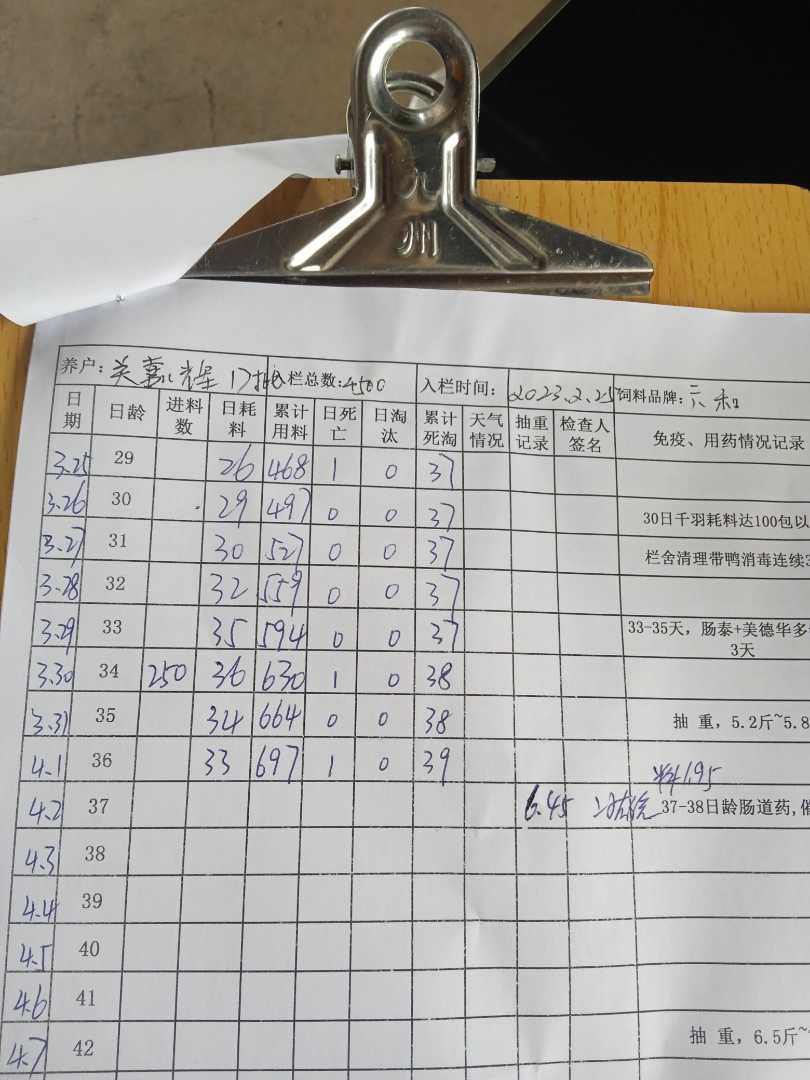 州
养户: 17 入栏总数:4500 入栏时间: 2023.2.25 饲料品牌: 六和
日期 日龄 进料数 日耗料 累计用料 日死亡 日淘汰 累计死淘 天气情况 抽重记录 检查人签名 免疫、用药情况记录
3.25 29 26 468 1 0 37
3.26 30 29 497 0 0 37 30日千羽耗料达100包以
3.27 31 30 527 0 0 37 栏舍清理带鸭消毒连续3
3.28 32 32 559 0 0 37
3.29 33 35 594 0 0 37 33-35天, 肠泰+美德华多
3天
3.30 34 250 36 630 1 0 38
3.31 35 34 664 0 0 38 抽 重, 5.2斤~5.8
4.1 36 33 697 1 0 39
料1.95
4.2 37 6.45 37-38日龄肠道药,催
4.3 38
4.4 39
4.5 40
4.6 41
4.7 42 抽 重, 6.5斤~